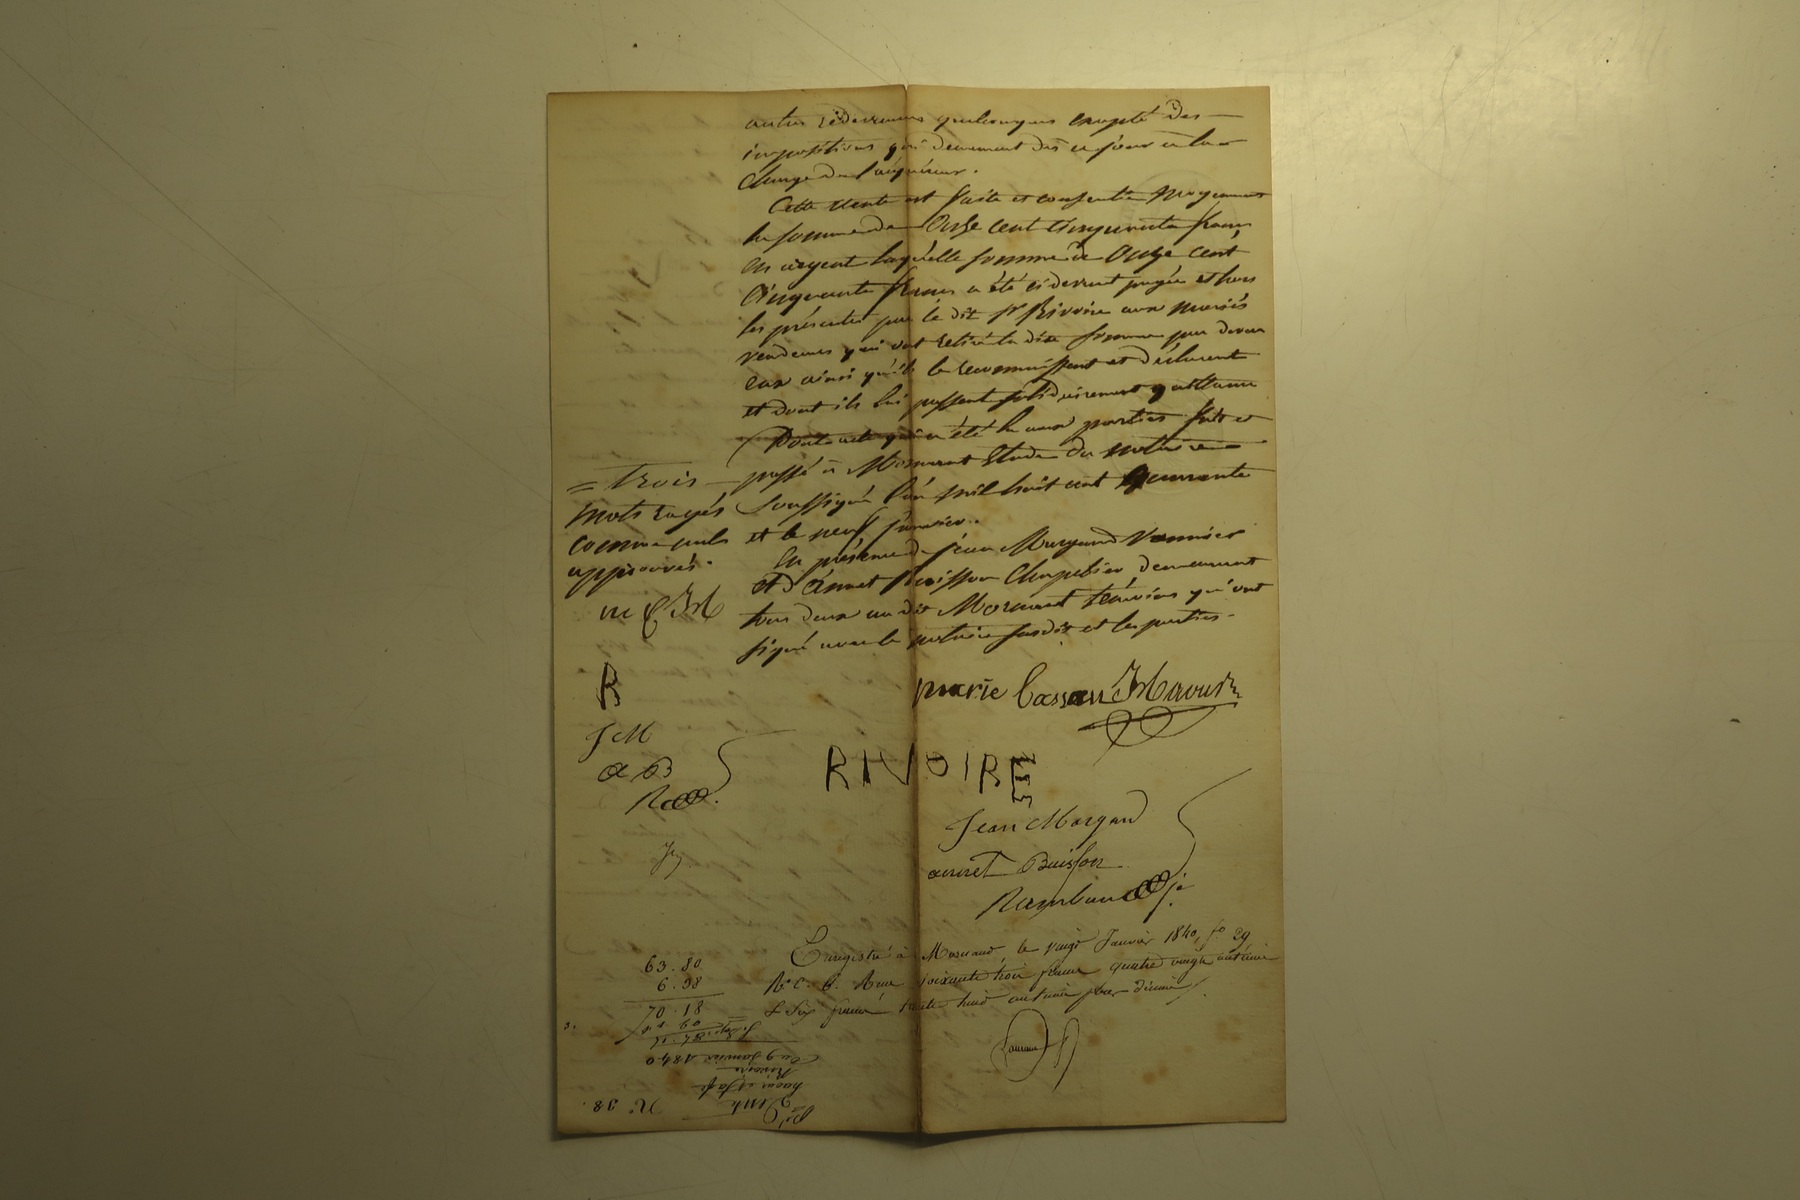 autres redevances quelconques excepté des
impositions qui demeurent dès ce jour à la
charge de l'acquéreur.
Cette vente est faite et consentie moyennant
la somme de Onze cent cinquante francs
en argent laquelle somme de Onze cent
cinquante francs a été ci devant payée et hors
les présentes par le dit Sr Rivoire aux mariés
vendeurs qui ont retiré la dite somme par devers
eux ainsi qu'ils le reconnaissent et déclarent
et dont ils lui passent solidairement quittance
Dont acte qui a été lu aux parties fait et
passé à Mornant Etude du notaire
soussigné l'an mil huit cent quarante
et le neuf janvier.
En présence de Jean Margand Vannier
et d'annet Buisson Chapelier demeurant
tous deux au dit Mornant témoins qui ont
signé avec le notaire susdit et les parties.
= trois
mots rayés
comme nuls
approuvés.
mc
R
JM
aB
marie Cassan
RIVOIRE
Jean Margand
annet Buisson
Rambaud
Enregistré à Mornand, le vingt Janvier 1840, fo 29
Vo C. 6. Reçu soixante trois francs quatre vingt centimes
& Six francs trente huit centimes pour décime
63.80
6.38
70.18
Du 9 Janvier 1840
Rivoire
Vente
No 38.